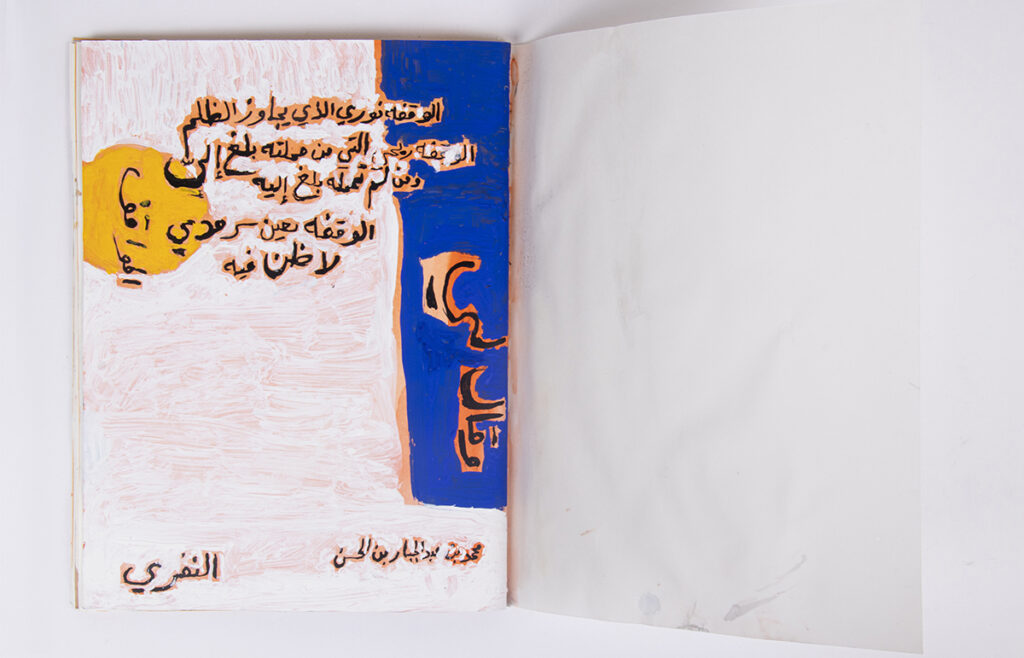 الوقفه نوري الذي يجاوز الظلم
الوقفه ريحي التي من حملته بلغ إلي
ومن لم تحمله بلغ إليه
الوقفه يقين سرمدي
لا ظن فيه
المواقف
وقال لي
محمد بن عبد الجبار بن الحسن
النفري